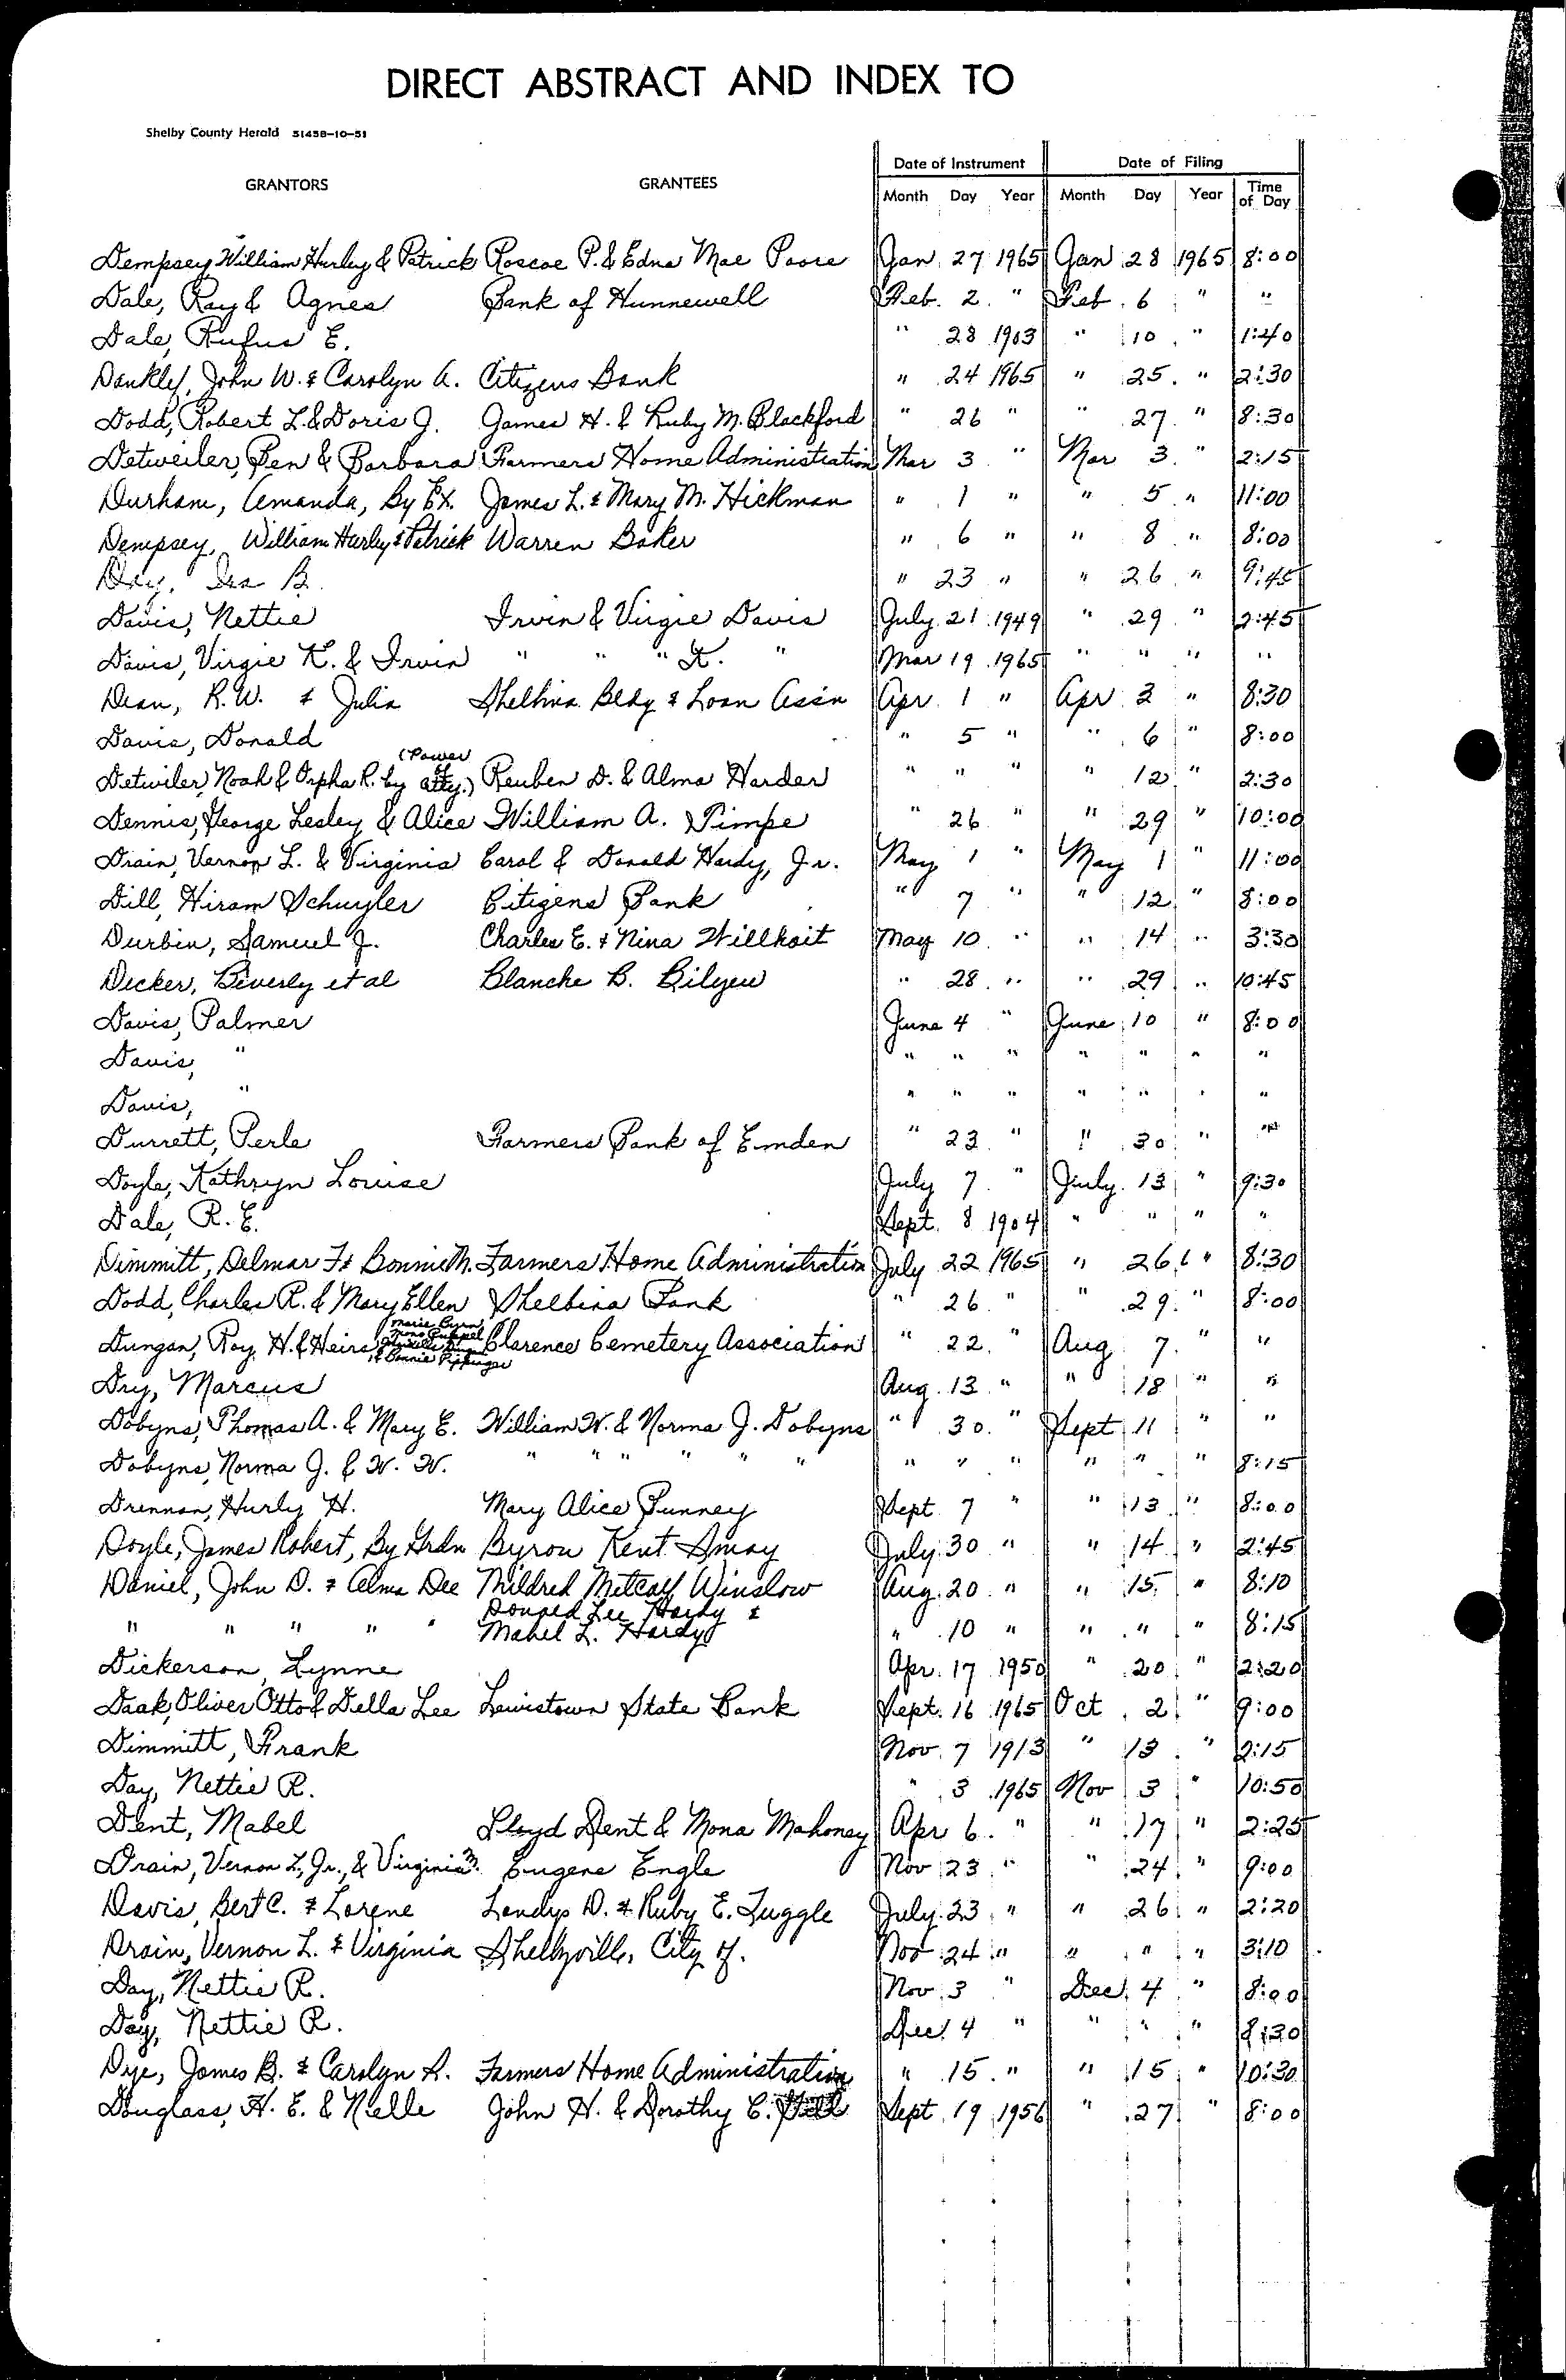 DIRECT ABSTRACT AND INDEX TO
Shelby County Herald 51458-10-51
Date of Instrument Date of Filing
GRANTORS GRANTEES
Month Day Year Month Day Year Time of Day
Dempsey William Hurley & Patrick Roscoe P. & Edna Mae Poore Jan. 27 1965 Jan 28 1965 8:00
Dale, Ray & Agnes Bank of Hunnewell Feb. 2. " Feb. 6 " "
Dale, Rufus E. " 28 1903 " 10 " 1:40
John W. & Carolyn A. Citizens Bank " 24 1965 " 25. " 2:30
Dodd, Robert L. & Doris J. James H. & Ruby M. Blackford " 26 " " 27. " 8:30
Detweiler, Ben & Barbara Farmers Home Administration Mar 3. " Mar 3. " 2:15
Durham, Amanda, By Ex. James L. & Mary M. Hickman " 1 " " 5 " 11:00
Dempsey, William Hurley & Patrick Warren Baker " 6 " " 8 " 8:00
B. " 23 " " 26 " 9:45
Davis, Nettie Irvin & Virgie Davis July 21 1949 " 29 " 2:45
Davis, Virgie K. & Irvin " " " K. " Mar 19 1965 " " " "
Dean, R.W. & Julia Shelbina Bldg & Loan Ass'n Apr. 1 " Apr 3 " 8:30
Davis, Donald " 5 " " 6 " 8:00
(Power of
Detwiler, Noah & Orpha R. by atty.) Reuben D. & Alma Harder " " " " 12 " 2:30
Dennis, George Lesley & Alice William A. Pimpe " 26 " " 29 " 10:00
Drain, Vernon L. & Virginia Carol & Donald Hardy, Jr. May 1 " May 1 " 11:00
Dill, Hiram Schuyler Citizens Bank " 7 " " 12 " 8:00
Durbin, Samuel J. Charles E. & Nina Willhoit May 10. " " 14 " 3:30
Decker, Beverly et al Blanche B. Bilyeu " 28. " " 29 " 10:45
Davis, Palmer June 4 " June 10 " 8:00
Davis, " " " " " " " "
Davis, " " " " " " " "
Durrett, Perle Farmers Bank of Emden " 23 " " 30 " "
Doyle, Kathryn Louise July 7. " July 13 " 9:30
Dale, R. E. Sept. 8 1904 " " " "
Dimmitt, Delmar F & Bonnie M. Farmers Home Administration July 22 1965 " 26 " 8:30
Dodd, Charles R. & Mary Ellen Shelbina Bank " 26. " " 29. " 8:00
Marie Byrn
Dungan, Roy H. & Heirs Clarence Cemetery Association " 22. " Aug. 7. " "
& Bonnie
Dry, Marcus Aug. 13 " " 18 " "
Dobyns, Thomas A. & Mary E. William W. & Norma J. Dobyns " 30. " Sept 11 " "
Dobyns, Norma J. & W. W. " " " " " " " " " " " 8:15
Drennon, Hurly H. Mary Alice Bunney Sept. 7 " " 13 " 8:00
Doyle, James Robert, By Grdn Byron Kent Amoy July 30 " " 14 " 2:45
Daniel, John D. & Alma Dee Mildred Metcalf Winslow Aug. 20 " " 15 " 8:10
Donald Lee Hardy &
" " " " " Mabel L. Hardy " 10 " " " " 8:15
Dickerson, Lynne Apr. 17 1950 " 20 " 2:20
Daak, Oliver Otto & Della Lee Lewistown State Bank Sept. 16 1965 Oct. 2 " 9:00
Dimmitt, Frank Nov. 7 1913 " 13 " 2:15
Day, Nettie R. " 3 1965 Nov 3 " 10:50
Dent, Mabel Lloyd Dent & Mona Mahoney Apr 6. " " 17 " 2:25
Drain, Vernon L., Jr., & Virginia M. Eugene Engle Nov 23 " " 24 " 9:00
Davis, Bert C. & Lorene Landys D. & Ruby E. Tuggle July 23 " " 26 " 2:20
Drain, Vernon L. & Virginia Shelbyville, City of. Nov 24 " " " " 3:10
Day, Nettie R. Nov. 3 " Dec. 4 " 8:00
Day, Nettie R. Dec. 4 " " " " 8:30
Dye, James B. & Carolyn R. Farmers Home Administration " 15. " " 15 " 10:30
Douglass, H. E. & Nelle John H. & Dorothy C. Sept. 19 1956 " 27 " 8:00